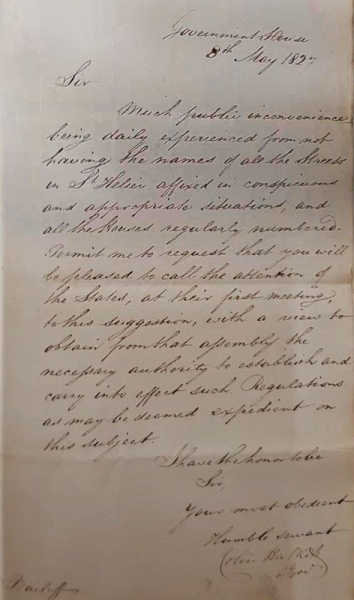 Government House
8th May 182
Sir
Much public inconvenience
being daily experienced from not
having the names of all the Streets
in St Helier affixed in conspicuous
and appropriate situations, and
all the Houses regularly numbered.
Permit me to request that you will
be pleased to call the attention of
the States, at their first meeting,
to this suggestion, with a view to
obtain from that assembly the
necessary authority to establish and
carry into effect such Regulations
as may be deemed expedient on
this subject.
I have the honor to be
Sir,
Your most obedient
Humble servant
Colin Halkett